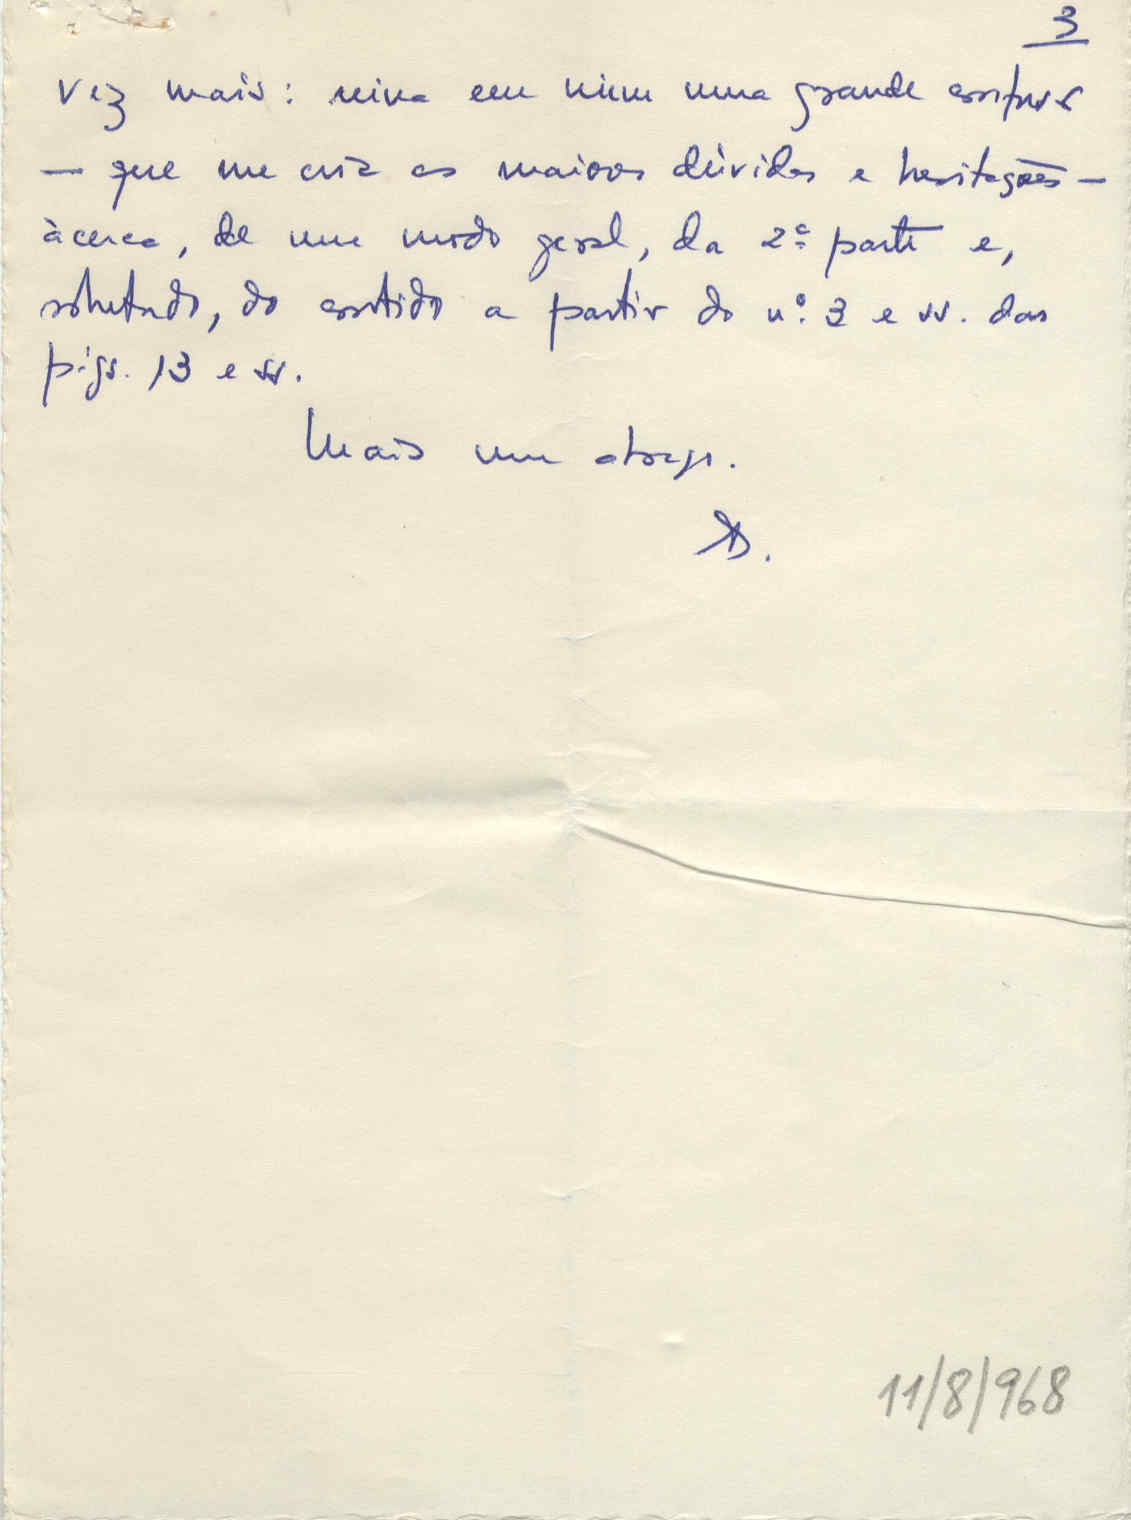 3
vez mais: reina em mim uma grande confusão
— que me cria as maiores dúvidas e hesitações —
àcerca, de um modo geral, da 2ª parte e,
sobretudo, do contido a partir do nº. 3 e ss. das
págs. 13 e ss.
Mais um abraço.
11/8/968